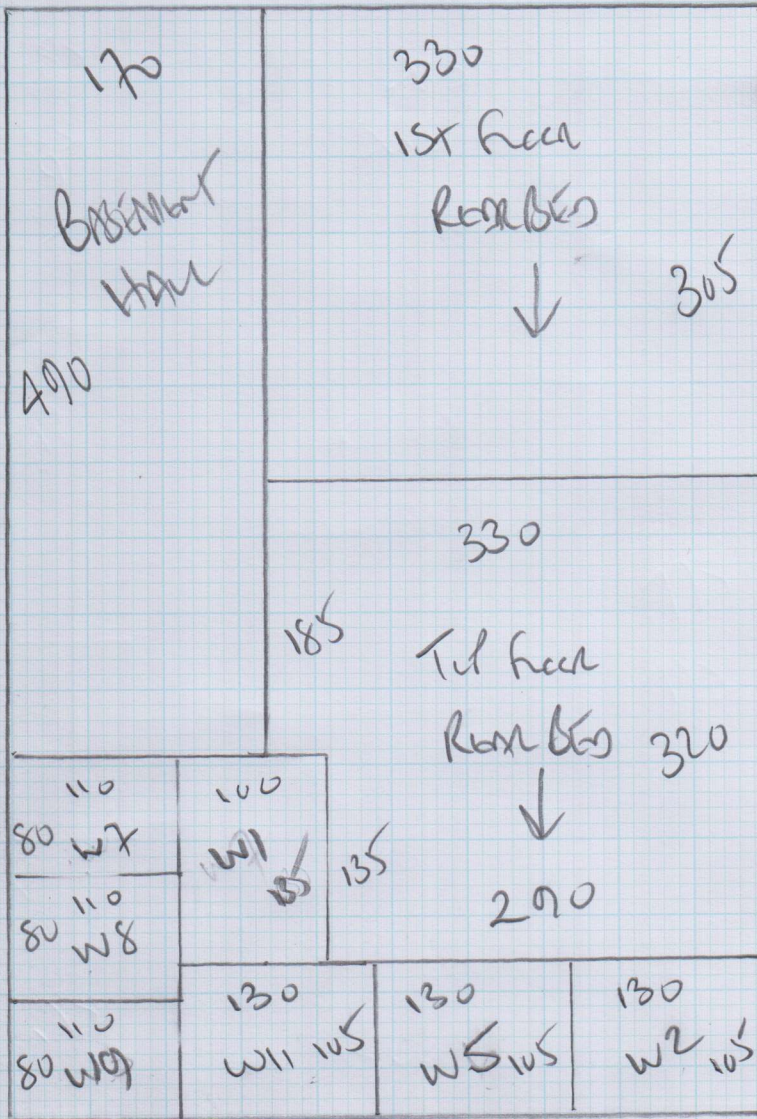 170
BASEMENT
HALL
490
330
1ST FLOOR
REAR BED
305
330
185
FLOOR
REAR BED
320
135
290
110
80 W7
100
W1
135
110
80 W8
110
80 W9
130
W11 105
130
W5 105
130
W2 105